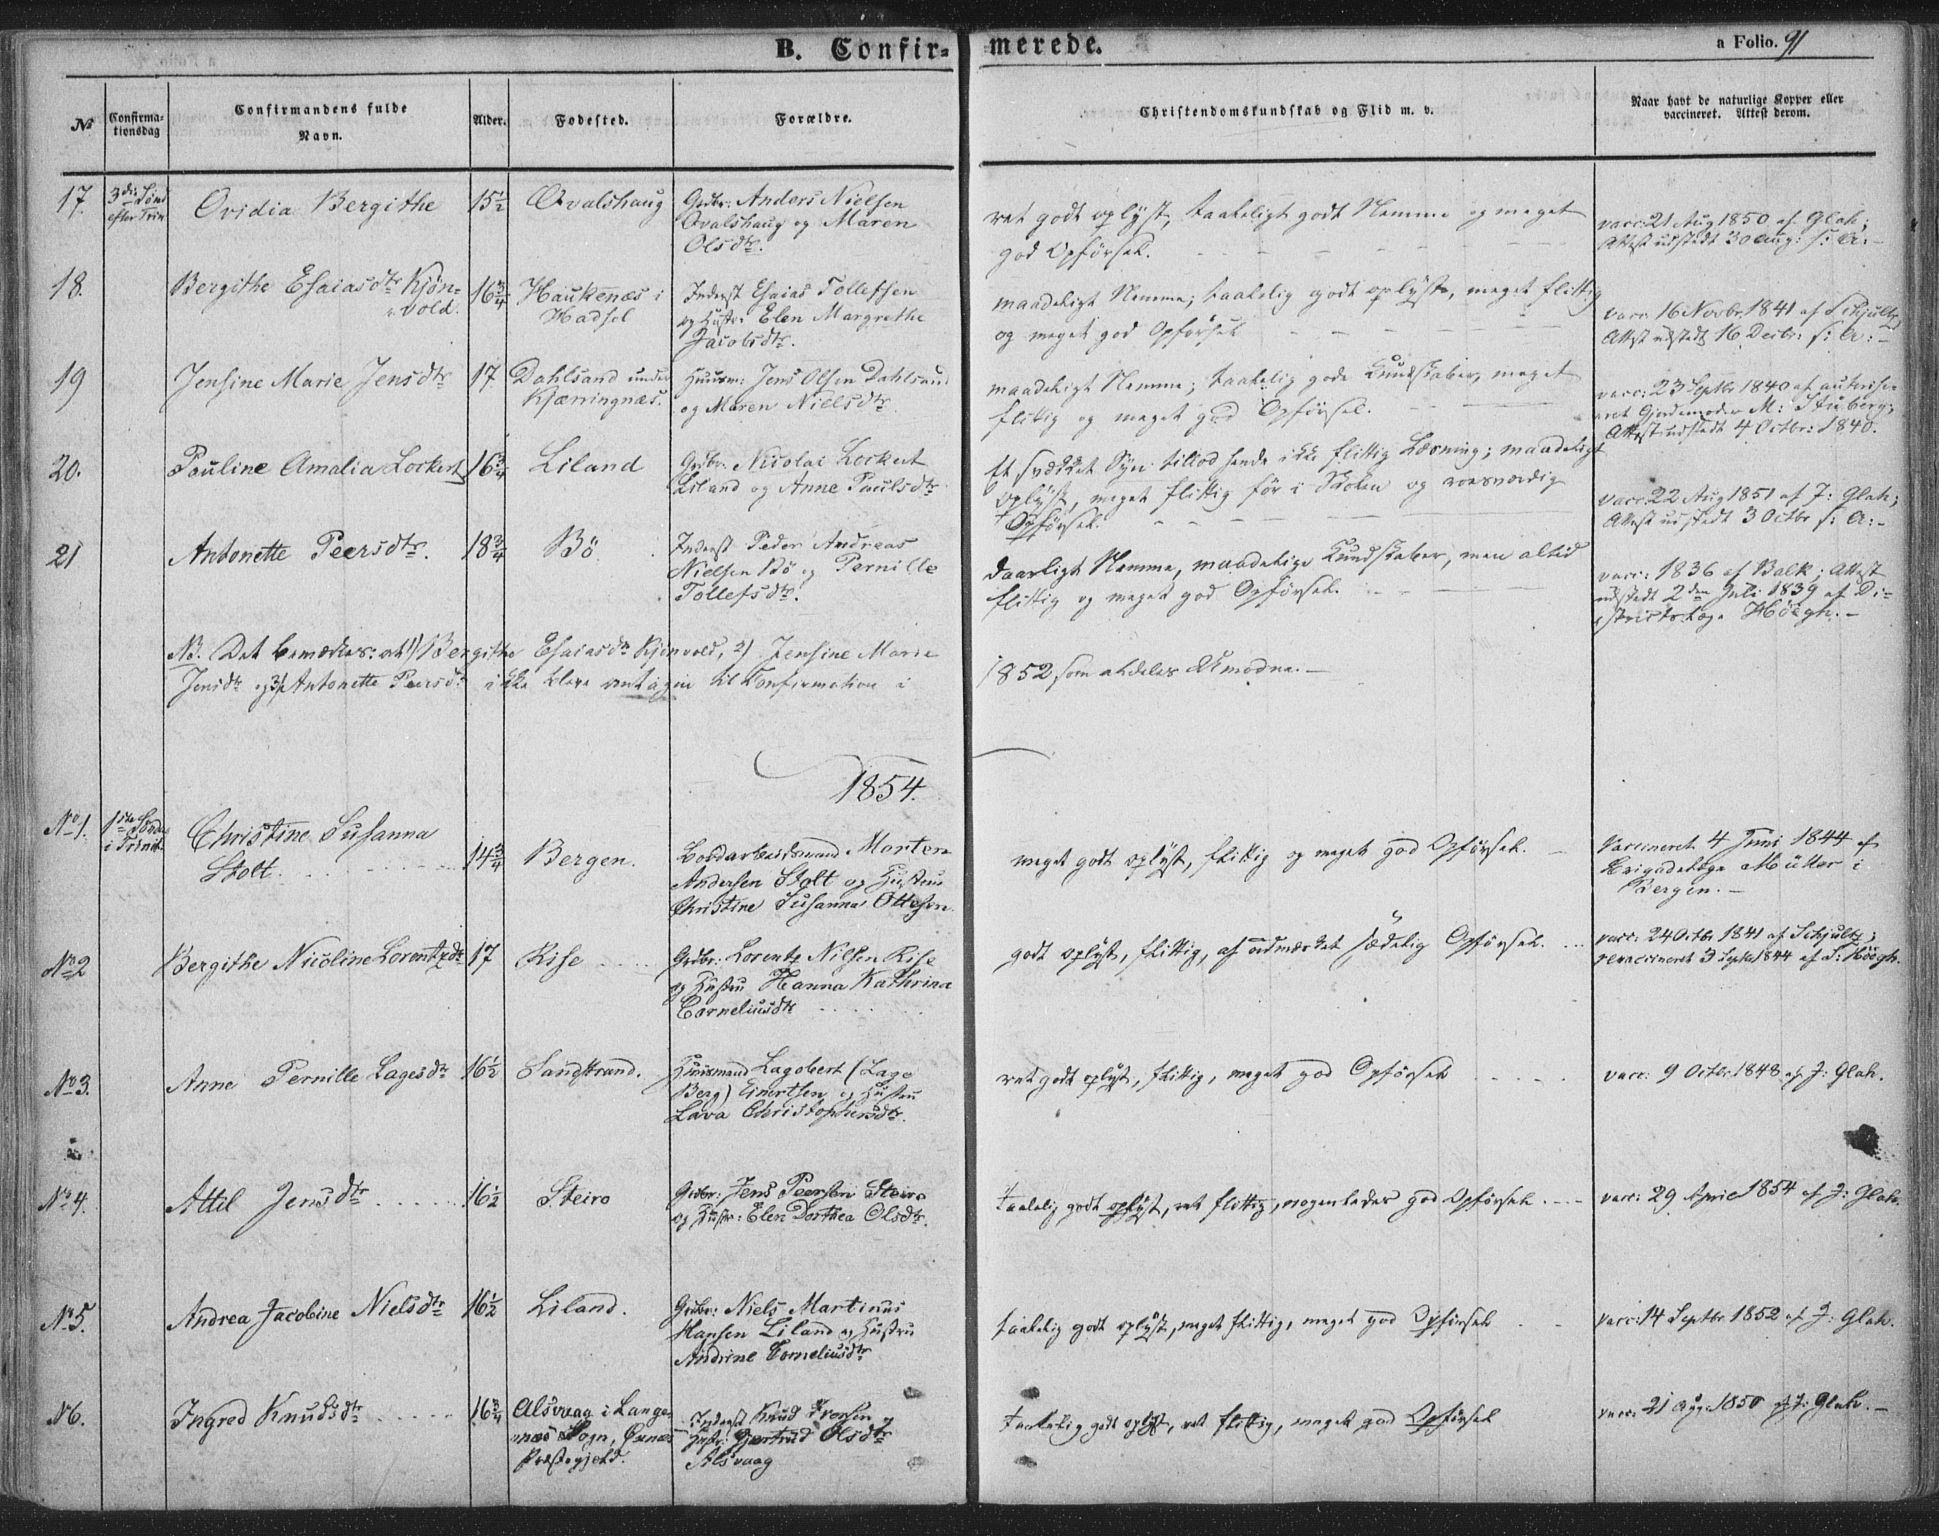 B. Confir= merede.
a Folio. 91
No
Confirma-
tionsdag
Confirmandens fulde
Navn.
Alder.
Fødested.
Forældre.
Christendomskundskab og Flid m. v.
Naar havt de naturlige Kopper eller
vaccineret. Attest derom.
17. 3die Sönd
efter Trin
Ovidia Bergithe
15½
Ovalshaug
Grdbr: Anders Nielsen
Ovalshaug og Maren
Olsdtr.
ret godt oplyst, taaleligt godt Nemme og meget
god Opförsel.
vacc: 21 Aug 1850 af Glah;
Attest udstedt 30 Aug: s: A: -
18.
Bergithe Esaiasdtr Kjön=
vold.
16¾
Haukenæs i
Hadsel
Inderst Esaias Tollefsen
og Hustr: Elen Margrethe
Jacobsdtr.
maadeligt Nemme; taalelig godt oplyst, meget flittig
og meget god Opförsel
vacc: 16 Novbr 1841 af Schjultz
Attest udstedt 16 Decbr: s: A: -
19
Jensine Marie Jensdtr
17
Dahlsand under
Kjæringnæs.
Huusm: Jens Olsen Dahlsand
og Maren Nielsdtr.
maadeligt Nemme; taalelig gode Kundskaber, meget
flittig og meget god Opförsel.
vacc: 23 Septbr 1840 af autorise-
ret Gjordemoder M: Stuberg;
Attest udstedt 4 Octbr: 1840.
20.
Pauline Amalia Lockert
16¾
Liland
Grdbr. Nicolai Lockert
Liland og Anne Paulsdtr
Et svækket Syn tillod hende ikke flittig Læsning; maadeligt
oplyst, meget flittig för i Skolen og roesværdig
Opförsel.
vacc: 22 Aug 1851 af J: Glah;
Attest udstedt 3 Octbr s: A: -
21
Antonette Peersdtr.
18¾
Bö
Inderst Peder Andreas
Nielsen Bö og Pernille
Tollefsdtr.
Daarligt Nemme, maadelige Kundskaber, men altid
flittig og meget god Opförsel.
vacc: 1836 af Balk; Attest
udstedt 2den Juli 1839 af Di=
strictslæge Höegh. -
NB. Det bemærkes: at 1) Bergithe Esaiasdtr Kjönvold, 2) Jensine Marie
Jensdtr og 3) Antonette Peersdtr ikke bleve antagne til Confirmation i
1852 som aldeles umodne. -
1854.
No 1. 1ste Sönd
i Trinit.
Christine Susanna
Stolt.
14¾
Bergen.
Marten
Andersen Stolt og Hustru
Christine Susanna Ottesen.
meget godt oplyst, flittig og meget god Opförsel.
Vaccineret 4 Juni 1844 af
Brigadelæge Müller i
Bergen. -
No 2
Bergithe Nicoline Lorentzdtr
17
Rise
Grdbr: Lorentz Nilsen Rise
og Hustru Hanna Kathrina
Corneliusdtr
godt oplyst, flittig, af udmærket sædelig Opförsel.
vacc: 24 Octbr 1841 af Schjultz;
revaccineret 3 Septbr 1844 af Höegh.
No 3.
Anne Pernille Lagesdtr
16½
Sandstrand.
Huusmand Lagobert (Lage
Berg) Einertsen og Hustru
Lava Christophersdtr.
ret godt oplyst, flittig, meget god Opförsel
vacc: 9 Octbr. 1848 af J: Glah.
No 4.
Attil Jensdtr
16½
Steiro
Grdbr: Jens Peersen Steiro
og Hustr: Elen Dorthea Olsdtr.
taalelig godt oplyst, ret flittig, mogentides god Opförsel
vacc: 29 April 1854 af J: Glah.
No 5.
Andrea Jacobine Nielsdtr
16½
Liland.
Grdbr: Niels Martinus
Hansen Liland og Hustru
Andrine Corneliusdtr
taalelig godt oplyst, meget flittig, meget god Opförsel
vacc: 14 Septbr 1852 af J: Glah.
No 6.
Ingred Knudsdtr
16¾
Alsvaag i Lange-
næs Sogn, Öxnæs
Præstegjeld.
Inderst Knud Iversen
og Hustr: Gjertrud Olsdtr
Alsvaag
taalelig godt oplyst, ret flittig, meget god Opförsel
vacc: 21 Aug: 1850 af J: Glah. -